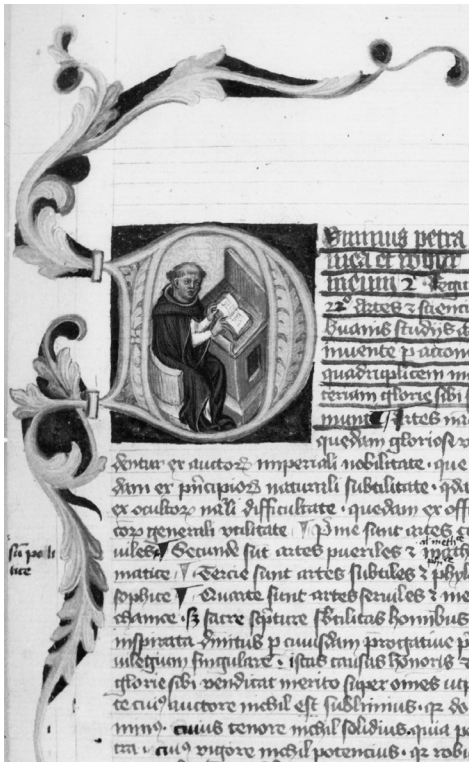 Dominus petra
mea et robur
meum 2º Regū
22º Artes & scienci
humanis studijs a
invente p actom
quadruplicem ma
teriam glorie sibi
Artes na
quedam gloriose v
dentur ex auctor imperiali nobilitate · que
dam ex pncipiorꝝ naturali subtilitate · qda
ex occultorꝝ nali difficultate · quedam ex offi
corꝝ generali vtilitate ¶ Pme sunt artes ci
uiles ¶ Secunde sūt artes pueriles & math
matice ¶ Tercie sunt artes subtiles & phyl
sophice ¶ Quarte sunt artes seruiles & me
chanice · sꝫ sacre scpture sbtilitas hominibus
inspirata diuinitus p cuiusdam progatiue p
uilegium singulare · istas causas honoris &
glorie sibi vendicat merito super omēs utp
te cuius auctore nichil est sublimius · qꝛ do
minus · cuius tenore nichil solidius · quia pe
tra · cuius vigore nichil potencius · qꝛ robu